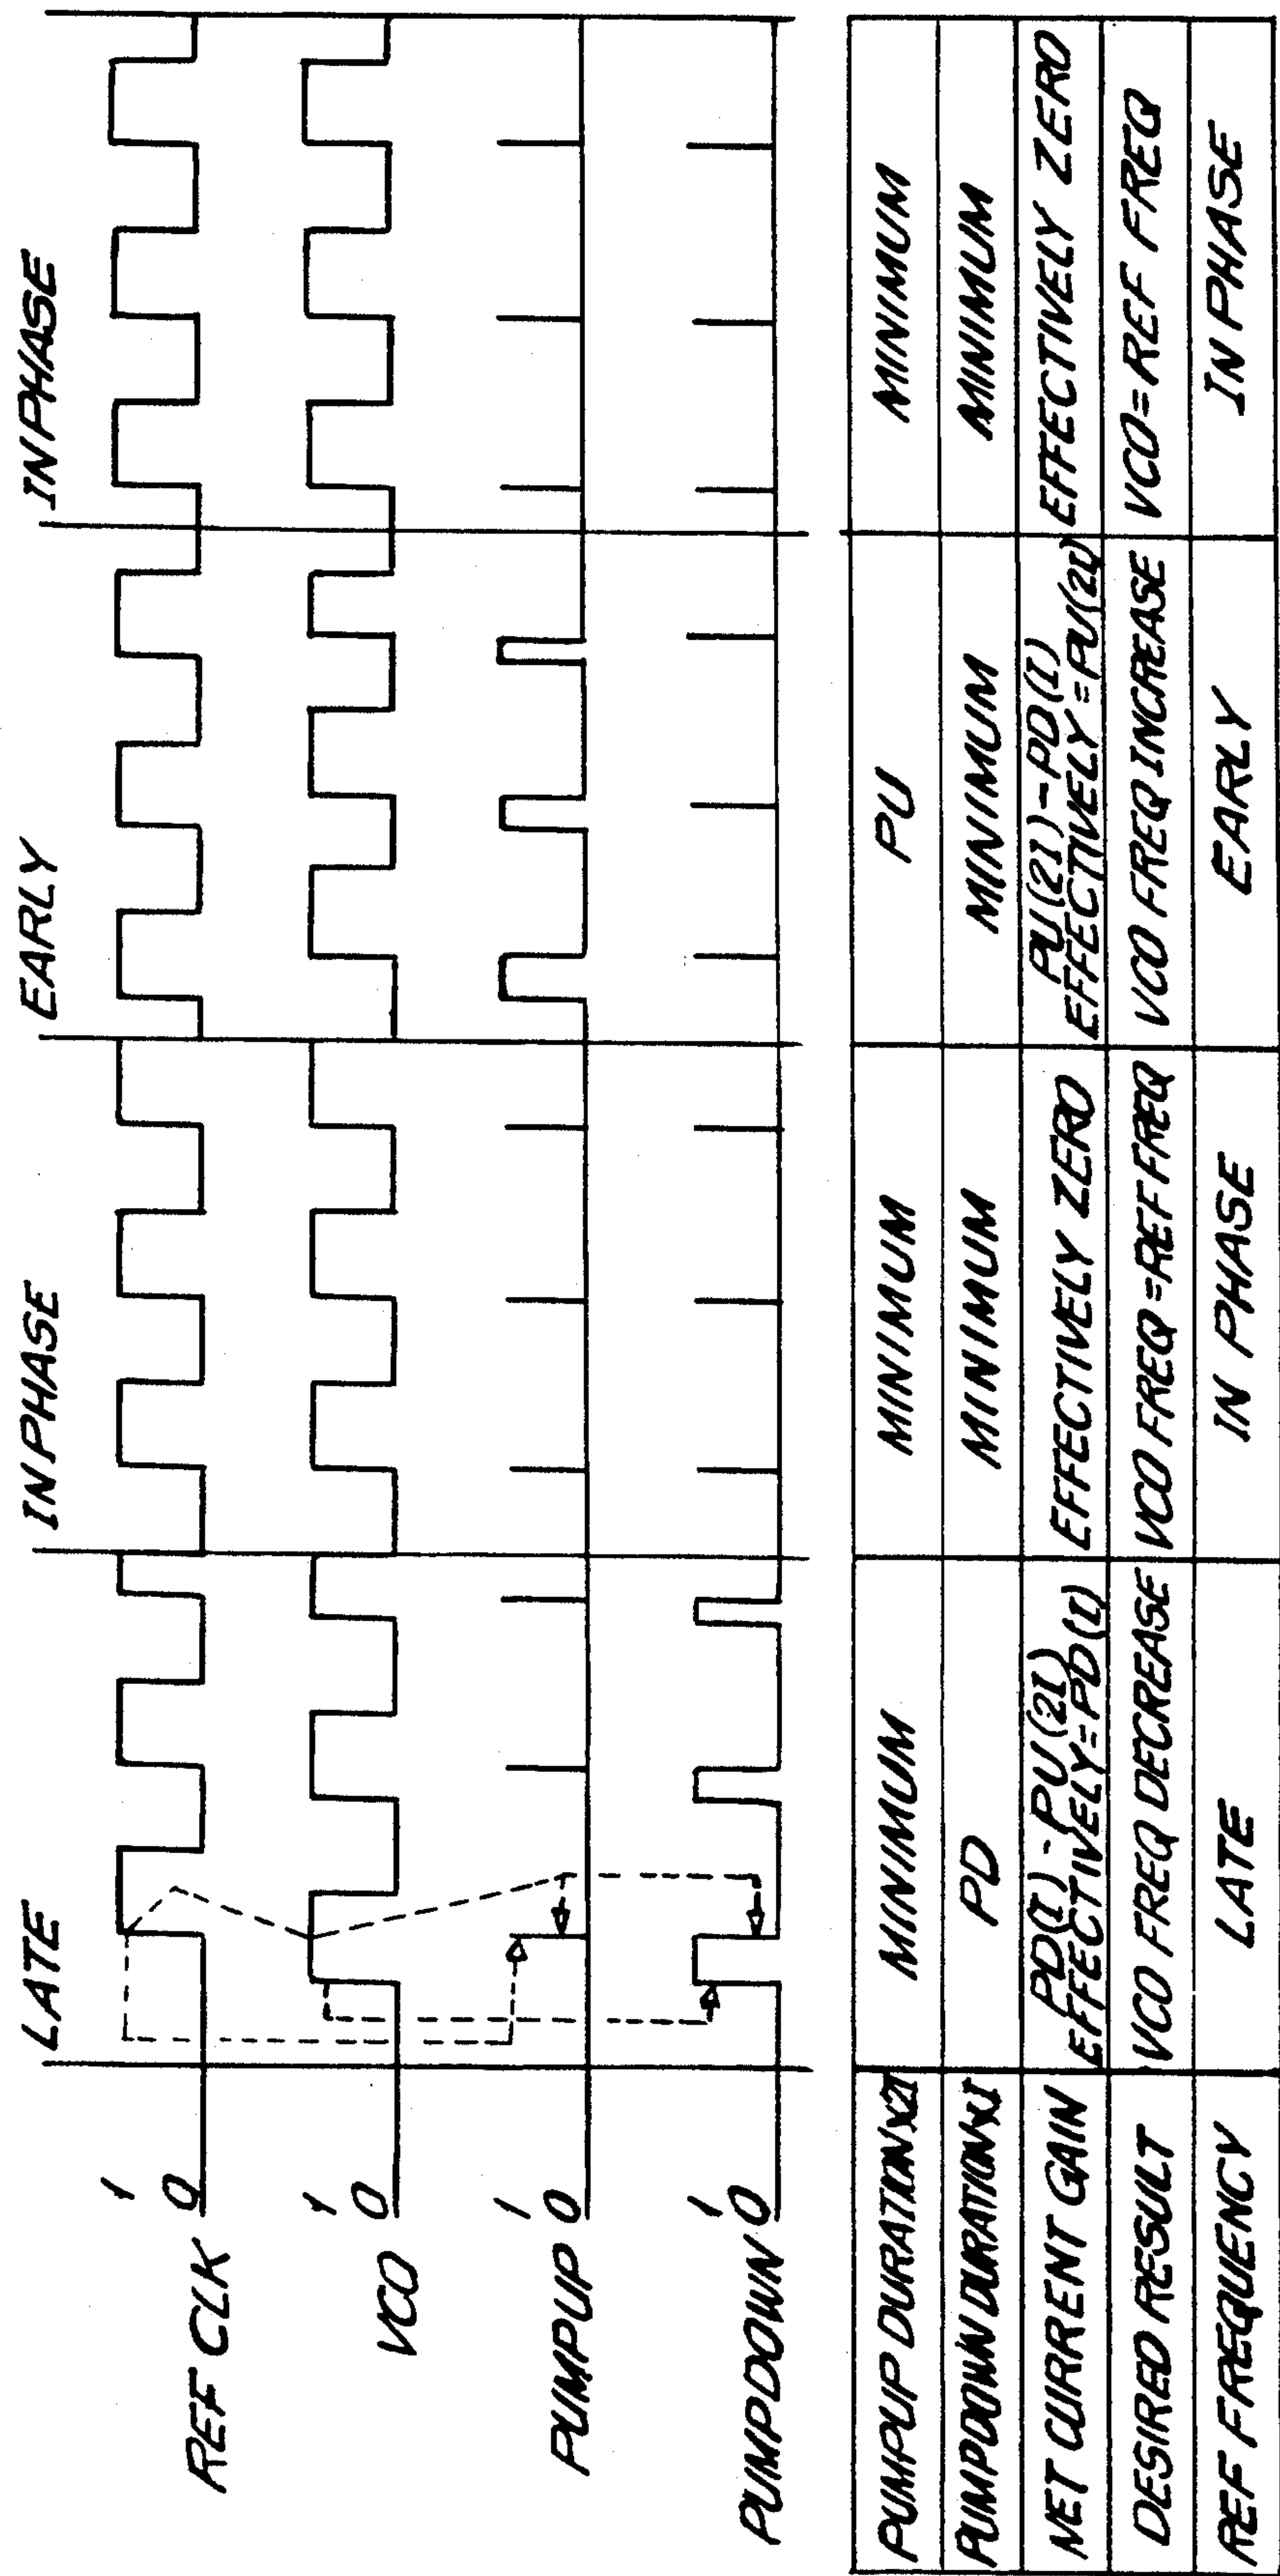 LATE
IN PHASE
EARLY
IN PHASE
1
0
REF CLK
1
0
VCO
1
0
PUMPUP
1
0
PUMPDOWN
PUMPUP DURATION X2I
MINIMUM
MINIMUM
PU
MINIMUM
PUMPDOWN DURATION XI
PD
MINIMUM
MINIMUM
MINIMUM
NET CURRENT GAIN
PD(I) - PU(2I)
EFFECTIVELY = PD(I)
EFFECTIVELY ZERO
PU(2I) - PD(I)
EFFECTIVELY = PU(2I)
EFFECTIVELY ZERO
DESIRED RESULT
VCO FREQ DECREASE
VCO FREQ = REF FREQ
VCO FREQ INCREASE
VCO = REF FREQ
REF FREQUENCY
LATE
IN PHASE
EARLY
IN PHASE